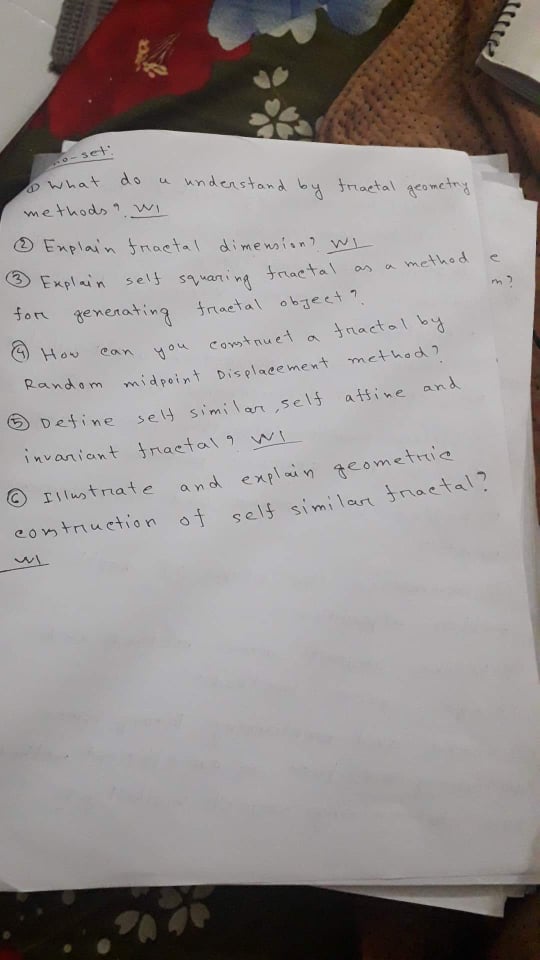 o-set:
① What do u understand by fractal geometry
methods? W1
② Explain fractal dimension? W1
③ Explain self squaring fractal as a method
for generating fractal object?
④ How can you construct a fractal by
Random midpoint Displacement method?
⑤ Define self similar, self affine and
invariant fractal? W1
⑥ Illustrate and explain geometric
construction of self similar fractal?
W1
e
m?